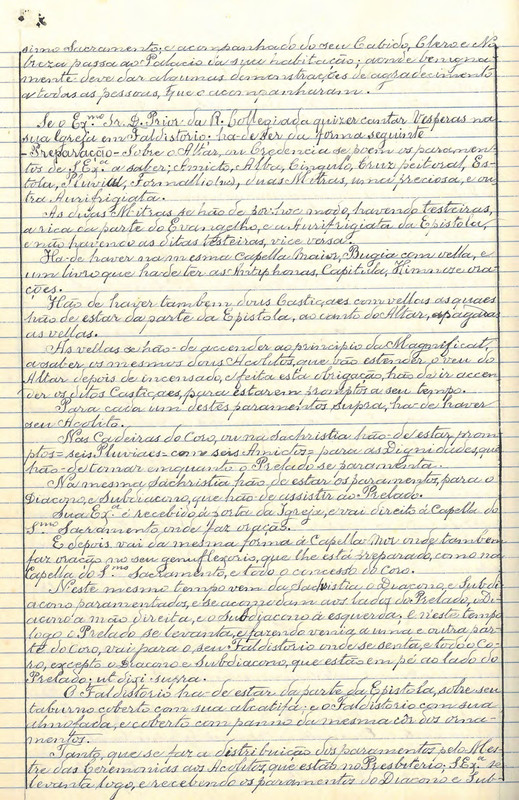 simo Sacramento; e acompanhado do seu Cabido, Clero e No
breza passa ao Palacio da sua habitação; aonde benigna-
mente deve dar algumas demonstrações de agradecimento
a todas as pessoas, que o acompanharam.
Se o Ex.mo Sr. D. Prior da R. Collegiada quizer cantar Vesperas na
sua Igreja em Faldistorio: ha-de ser da forma seguinte
- Preparação - Sobre o Altar, ou Credencia se poem os paramen-
tos de S. Ex.a a saber; Amicto, Alva, Cingulo, Cruz peitoral, Es-
tola, Pluvial, Formalio (sic), duas Mitras, uma preciosa, e ou
tra Aurifrigiata.
As duas Mitras se hão de pôr hoc modo, havendo testeiras,
a rica da parte do Evangelho, e a Aurifrigiata da Epistola,
e não havendo as ditas testeiras, vice versa.
Ha-de haver na mesma Capella Maior, Bugia com vella, e
um livro que ha de ter as Antiphonas, Capitula, Himno e ora
ções.
Hão de haver tambem dous Castiçaes com vellas as quaes
hão de estar da parte da Epistola, ao canto do Altar, apagadas
as vellas.
As vellas se hão-de accender ao principio da Magnificat,
a saber os mesmos dous Acolitos, que vão estender o veu do
Altar depois de incensado, e feita esta obrigação, hão de ir accen
der os ditos Castiçaes, para estarem promptos a seu tempo.
Para cada um destes paramentos supra, ha-de haver
seu Acolito.
Nas Cadeiras do Coro, ou na Sachristia hão-de estar prom
ptos = seis Pluviaes = com seis Amictos = para as Dignidades, que
hão-de tomar emquanto o Prelado se paramenta.
Na mesma Sachristia hão de estar os paramentos, para o
Diacono, e Subdiacono, que hão de assistir ao Prelado.
Sua Ex.a é recebido á porta da Igreja, e vai direito á Capella do
S.mo Sacramento onde faz oração.
E depois vai da mesma forma á Capella Mor onde tambem
faz oração no seu genuflexorio, que lhe está preparado, como na
Capella do S.mo Sacramento, e todo o concesso do Coro.
Neste mesmo tempo vem da Sachristia o Diacono, e Subdi
acono paramentados, e se acomodam aos lados do Prelado, o Di
acono á mão direita, e o Subdiacono á esquerda; e neste tempo
logo o Prelado se levanta, e fazendo venia a uma e outra par
te do Coro, vai para o seu Faldistorio onde se senta, e todo o Co
ro, excepto o Diacono e Subdiacono, que estão em pé ao lado do
Prelado; ut dixi supra.
O Faldistorio ha-de estar da parte da Epistola, sobre seu
taburno coberto com sua alcatifa; e o Faldistorio com sua
almofada, e coberto com panno da mesma côr dos orna-
mentos.
Tanto, que se faz a distribuição dos paramentos pelo Mes-
tre das Ceremonias aos Acolitos, que estão no Presbiterio; S. Ex.a se
levanta logo, e recebendo os paramentos do Diacono e Sub-